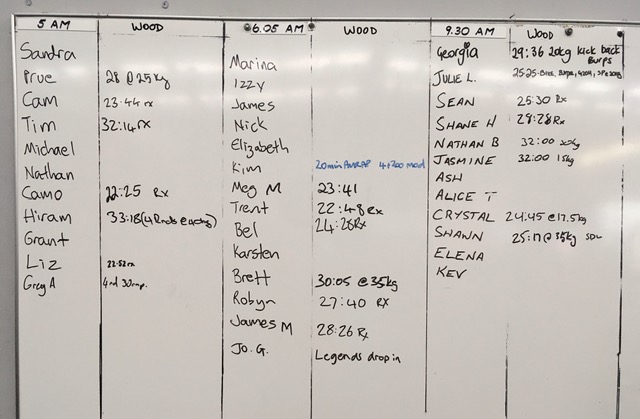 5 AM WOOD
Sandra
Prue 28 @ 25kg
Cam 23.44 rx
Tim 32:14 rx
Michael
Nathan
Camo 22:25 Rx
Hiram 33:18 (4 Rnds
Grant
Liz 22:52 rx
Greg A 4 rd 30 mp.
6.05 AM WOOD
Marina
Izzy
James
Nick
Elizabeth
Kim 20 min AMRAP 4+200 mod
Meg M 23:41
Trent 22:48 Rx
Bel 24:28 Rx
Karsten
Brett 30:05 @ 35kg
Robyn 27:40 RX
James M 28:26 Rx
Jo.G. Legends drop in
9.30 AM WOOD
Georgia 29:36 20kg kick back
Burps
JULIE L. 25:25
SEAN 25:30 Rx
SHANE H 28:28 Rx
NATHAN B 32:00
JASMINE 32:00 15kg
ASH
ALICE T
CRYSTAL 24:45 @ 17.5kg
SHAWN 25:17 @ 35kg SDL
ELENA
KEV